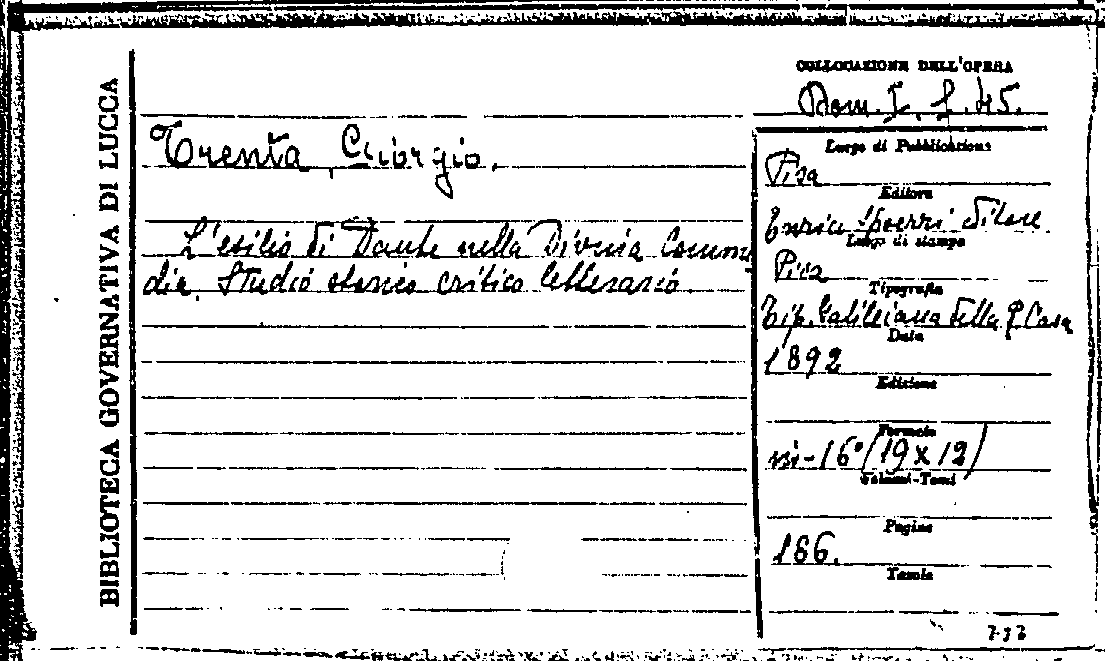 BIBLIOTECA GOVERNATIVA DI LUCCA
COLLOCAZIONE DELL'OPERA
Dom. I. f. 45.
Trenta, Giorgio.
L'esilio di Dante nella Divina Comme
dia. Studio storico critico letterario.
Luogo di Pubblicazione
Pisa
Editore
Enrico Spoerri Editore
Luogo di stampa
Pisa
Tipografia
Tip. Galileiana della R. Casa
Data
1892
Edizione
Formato
in-16° (19 x 12)
Volumi-Tomi
Pagine
186.
Tavole